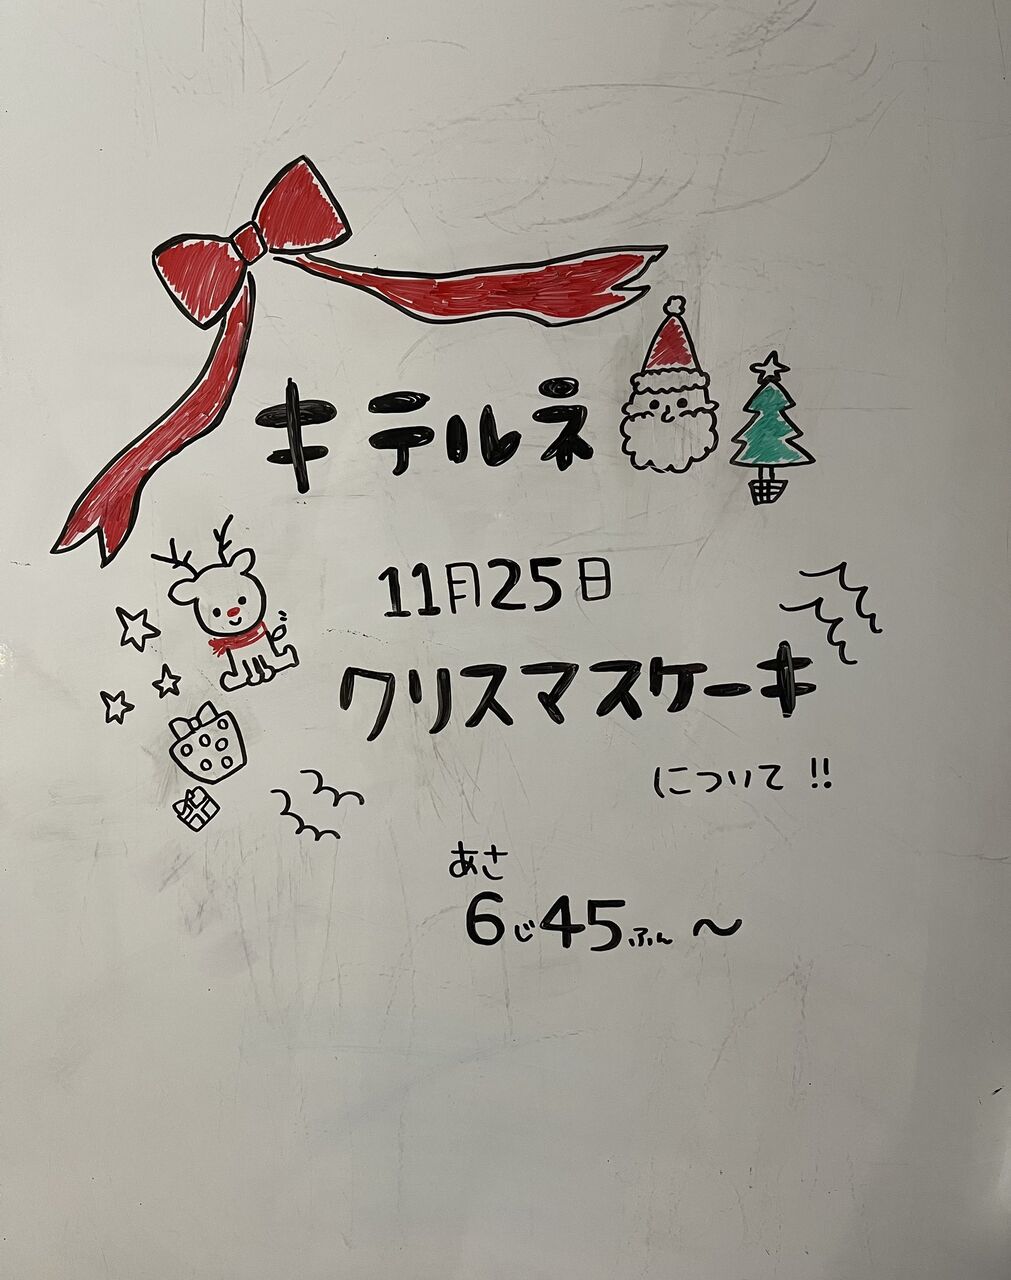 キテルネ
11月25日
クリスマスケーキ
について!!
あさ
6じ45ふん〜